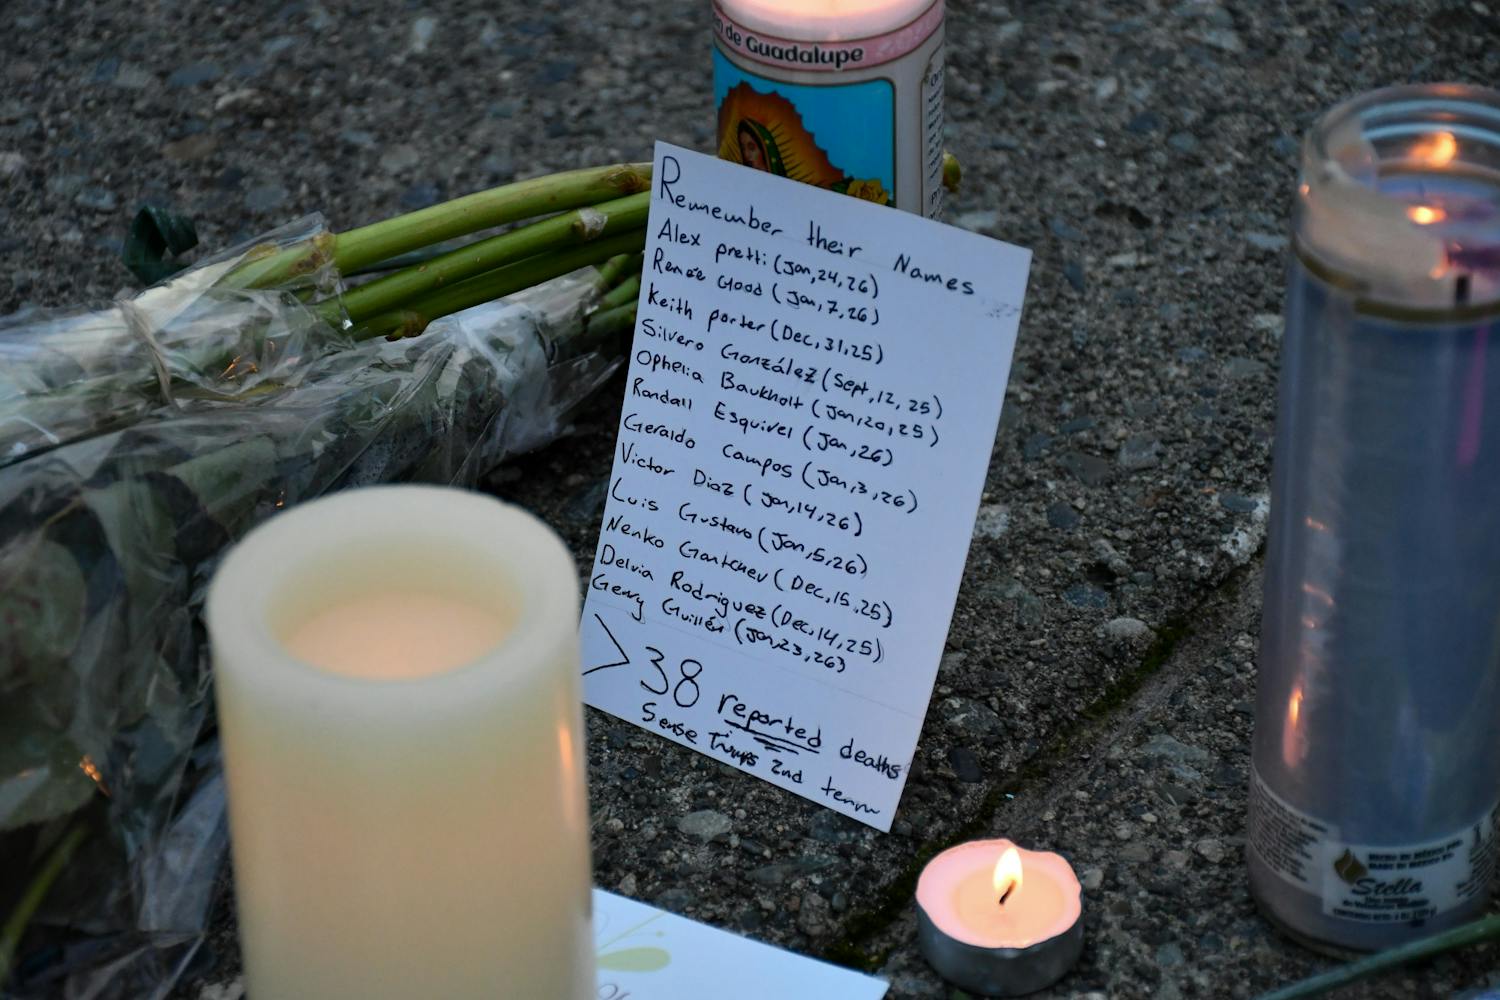 de Guadalupe
Remember their Names
Alex pretti (Jan, 24, 26)
Renée Good (Jan, 7, 26)
Keith porter (Dec, 31, 25)
Silvero González (Sept, 12, 25)
Ophelia Baukholt (Jan, 20, 25)
Randall Esquivel (Jan, 26)
Geraldo Campos (Jan, 3, 26)
Victor Diaz (Jan, 14, 26)
Luis Gustavo (Jan, 5, 26)
Nenko Gantchev (Dec, 15, 25)
Delvia Rodriguez (Dec, 14, 25)
Geny Guillén (Jan, 23, 26)
>38 reported deaths
Sense Trumps 2nd term
Stella